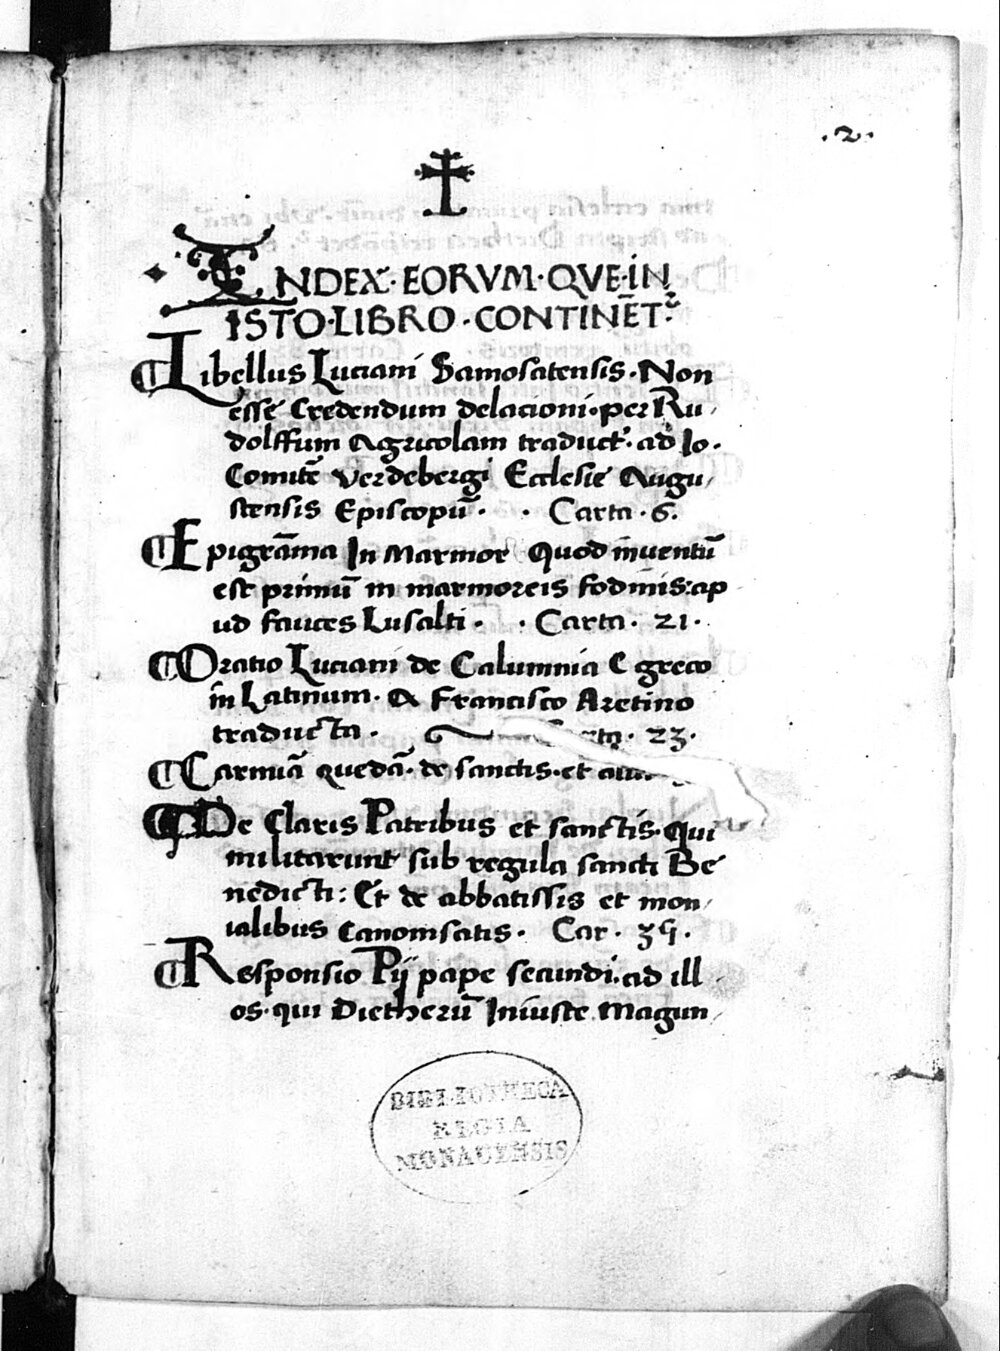 .2.
INDEX·EORVM·QVE·IN
ISTO·LIBRO·CONTINĒT᷑:
Libellus Luciani Samosatensis·Non
esse Credendum delacioni·per Ru
dolffum Agricolam traduct᷒·ad Io·
Comitē Verdebergi Ecclesie Augu
stensis Episcopū· · Carta·6·
Epigrāma In Marmor Quod inuentū
est primū in marmoreis fodinis:ap
ud fauces Lusalti· · Carta·21·
Oratio Luciani de Calumnia E greco
in Latinum· A Francisco Aretino
traducta· 23·
Carmīa quedā·de sanctis·et
De Claris Patribus et sanctis·Qui
militarunt sub regula sancti Be
nedicti: Et de abbatissis et mon
ialibus Canonisatis· Car·
Responsio Pij pape secundi·ad ill
os·qui Dietherū Iniuste Magun
BIBLIOTHECA
REGIA
MONACENSIS